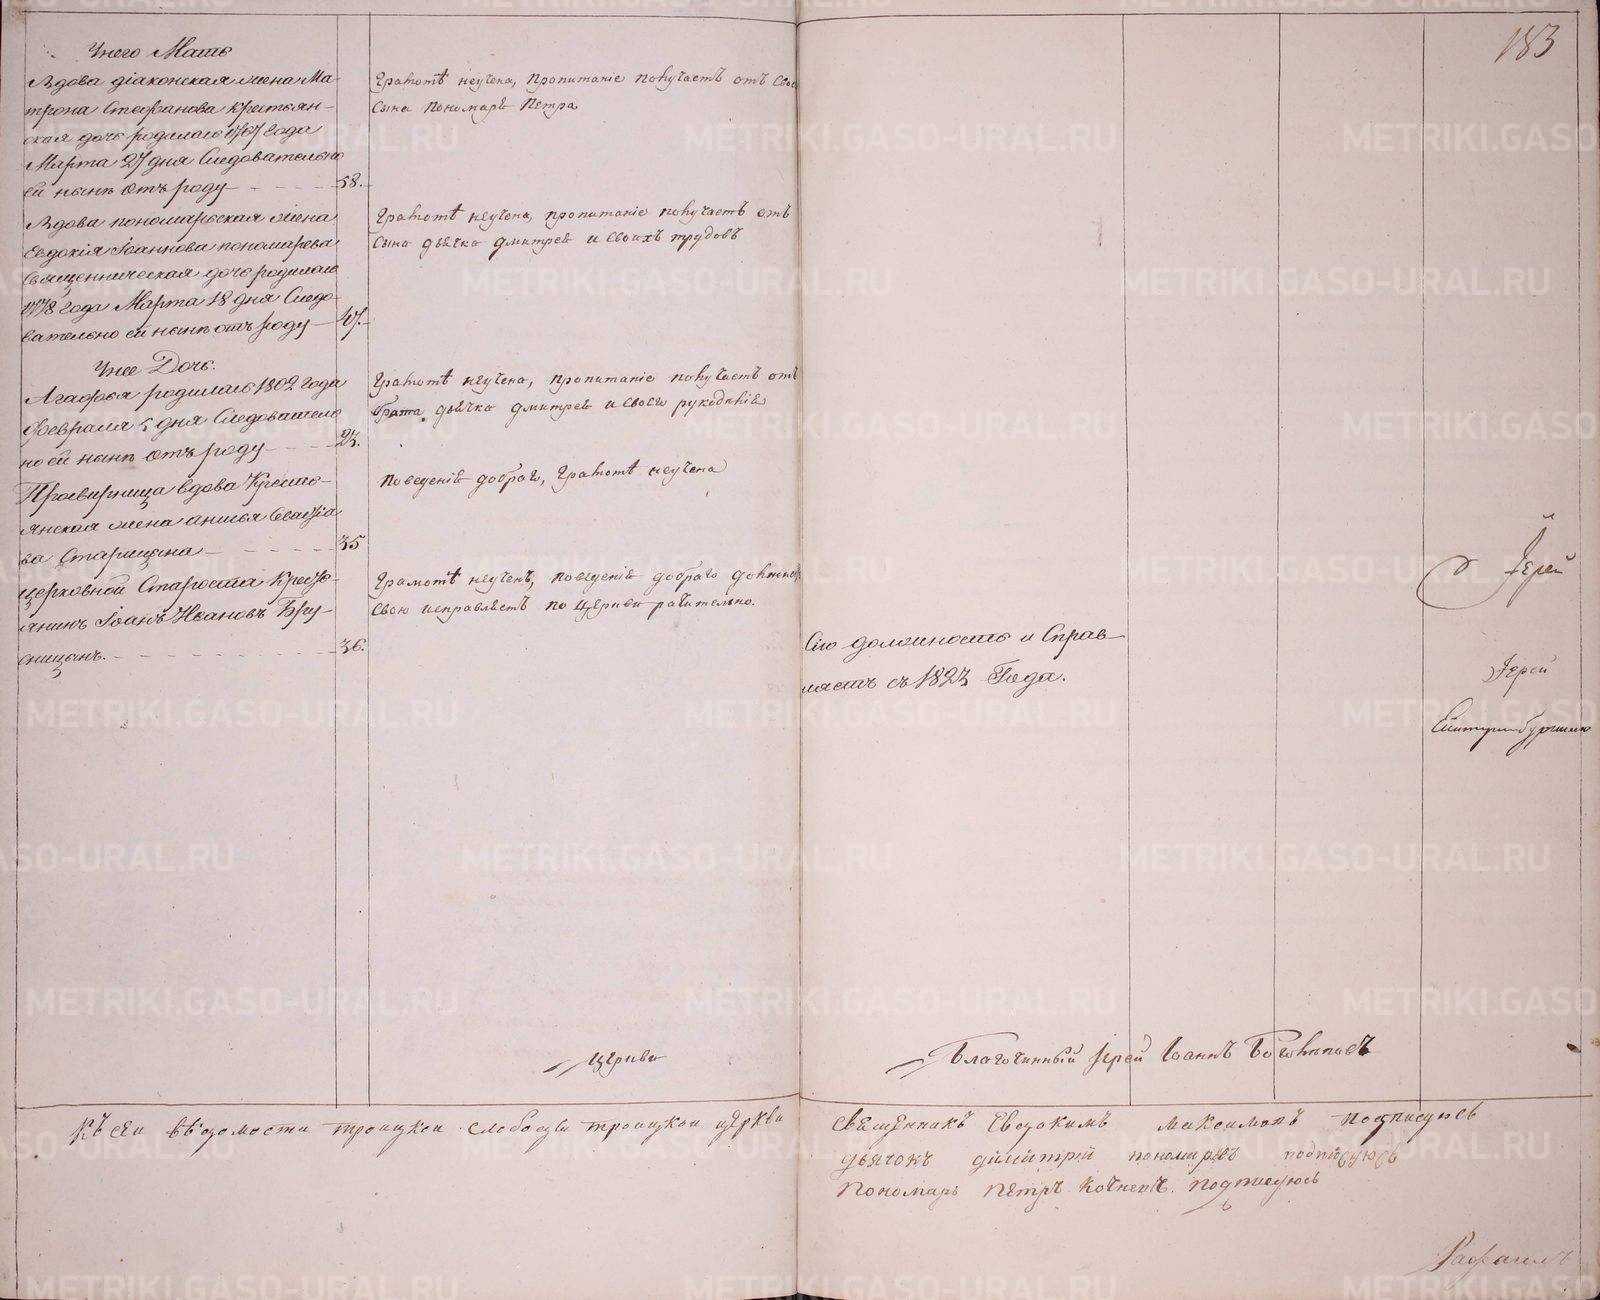 183
У него Мать
Вдова діаконская жена Ма-
трона Стефанова крестьян-
ская дочь родилась 1767 года
Марта 27 дня Следовательно
ей нынѣ отъ роду 58.
Грамотѣ неучена, пропитаніе получаетъ отъ Свое
Сына Пономаря Петра
Вдова пономарьская жена
Евдокія Іоаннова пономарева
Священническая дочь родилась
1778 года Марта 18 дня Следо-
вательно ей нынѣ отъ роду 47.
Грамотѣ неучена, пропитаніе получаетъ отъ
Сына дьячка дмитрея и своихъ трудовъ
У нее Дочь.
Агафья родилась 1802 года
Февраля 5 дня Следователь
но ей нынѣ отъ роду 23.
Грамотѣ неучена, пропитаніе получаетъ отъ
брата дьячка дмитрея и своего рукодѣлія
Просвирница вдова Крестъ-
янская жена
ва Старицына 35
Поведенія добраго, Грамотѣ неучена
церковной Староста Крестъ-
янинъ Іоанъ Ивановъ Бру-
сницынъ. 36.
Грамотѣ неученъ, поведенія добраго должность
Свою исправляетъ по церкви рачительно.
Сію должность и Справ-
ляетъ съ 1823 Года.
Іерей
Іерей
церкви
Благочинный Іерей Іоаннъ
Къ сей вѣдомости троицкой слободы троицкой церкви
Священникъ Евдокимъ Максимовъ подписуюсь
дьячокъ димитрій пономаревъ подписуюсь
Пономарь Петръ подписуюсь
Рафаилъ
METRIKI.GASO-URAL.RU